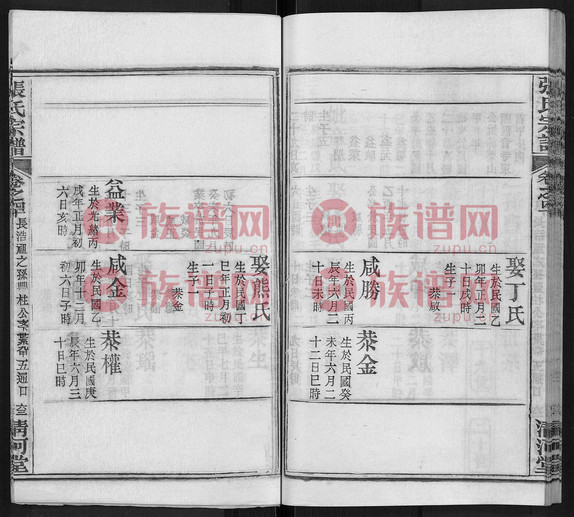 張氏宗譜
娶丁氏
生於民國乙
卯年正月二
十日戌時
生子
恭敏
咸勝
生於民國丙
辰年六月二
十日未時
恭金
生於民國癸
未年六月二
十二日巳時
清河堂
娶熊氏
生於民國丁
巳年正月初
一日子時
生子
恭金
咸金
生於民國乙
卯年十二月
初六日子時
恭權
生於民國庚
辰年六月三
十日巳時
益業
生於光緒丙
戌年正月初
六日亥時
張氏宗譜
清河堂
族谱网
www.zupu.cn
族谱网
www.zupu.cn
族谱网
www.zupu.cn
族谱网
www.zupu.cn